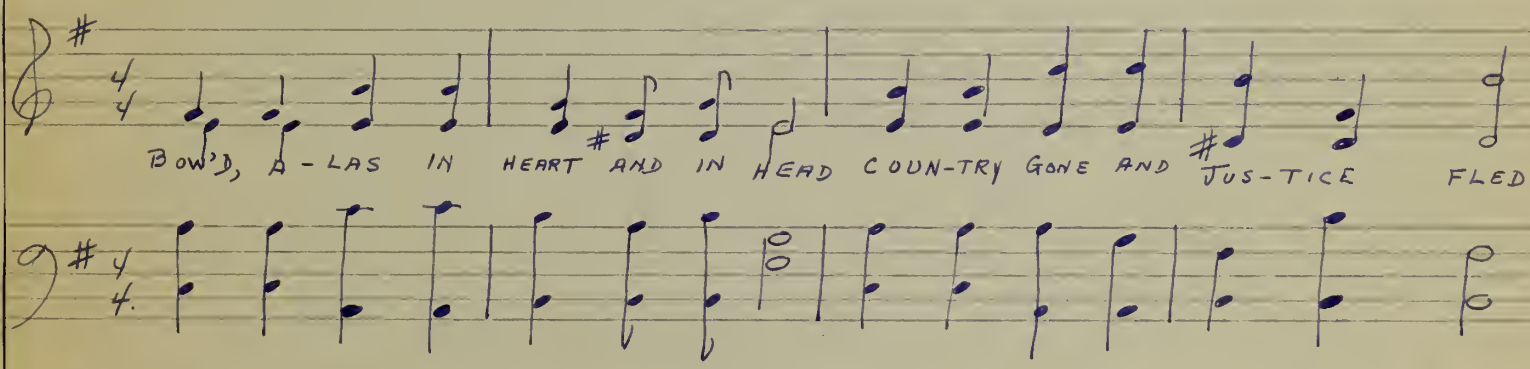 4
4
BOW'D, A-LAS IN HEART AND IN HEAD COUN-TRY GONE AND JUS-TICE FLED
4
4.